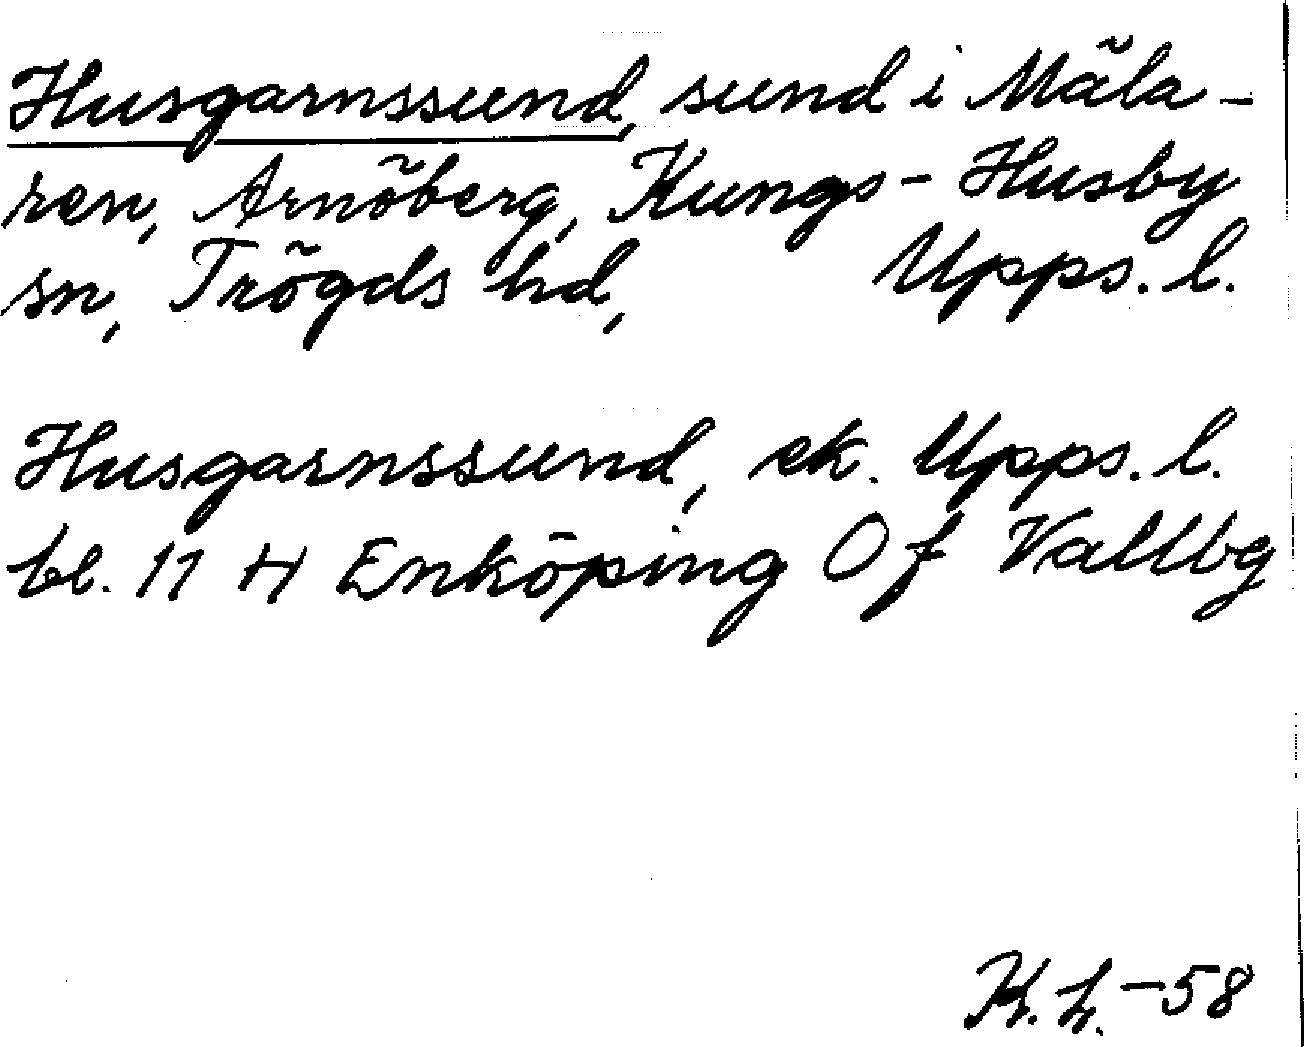 Husgarnssund, sund i Mäla-
ren, Arnöberg, Kungs-Husby
sn, Trögds hd, Upps. l.
Husgarnssund, ek. Upps. l.
bl. 11 H Enköping Of Vallby
K. L. -58